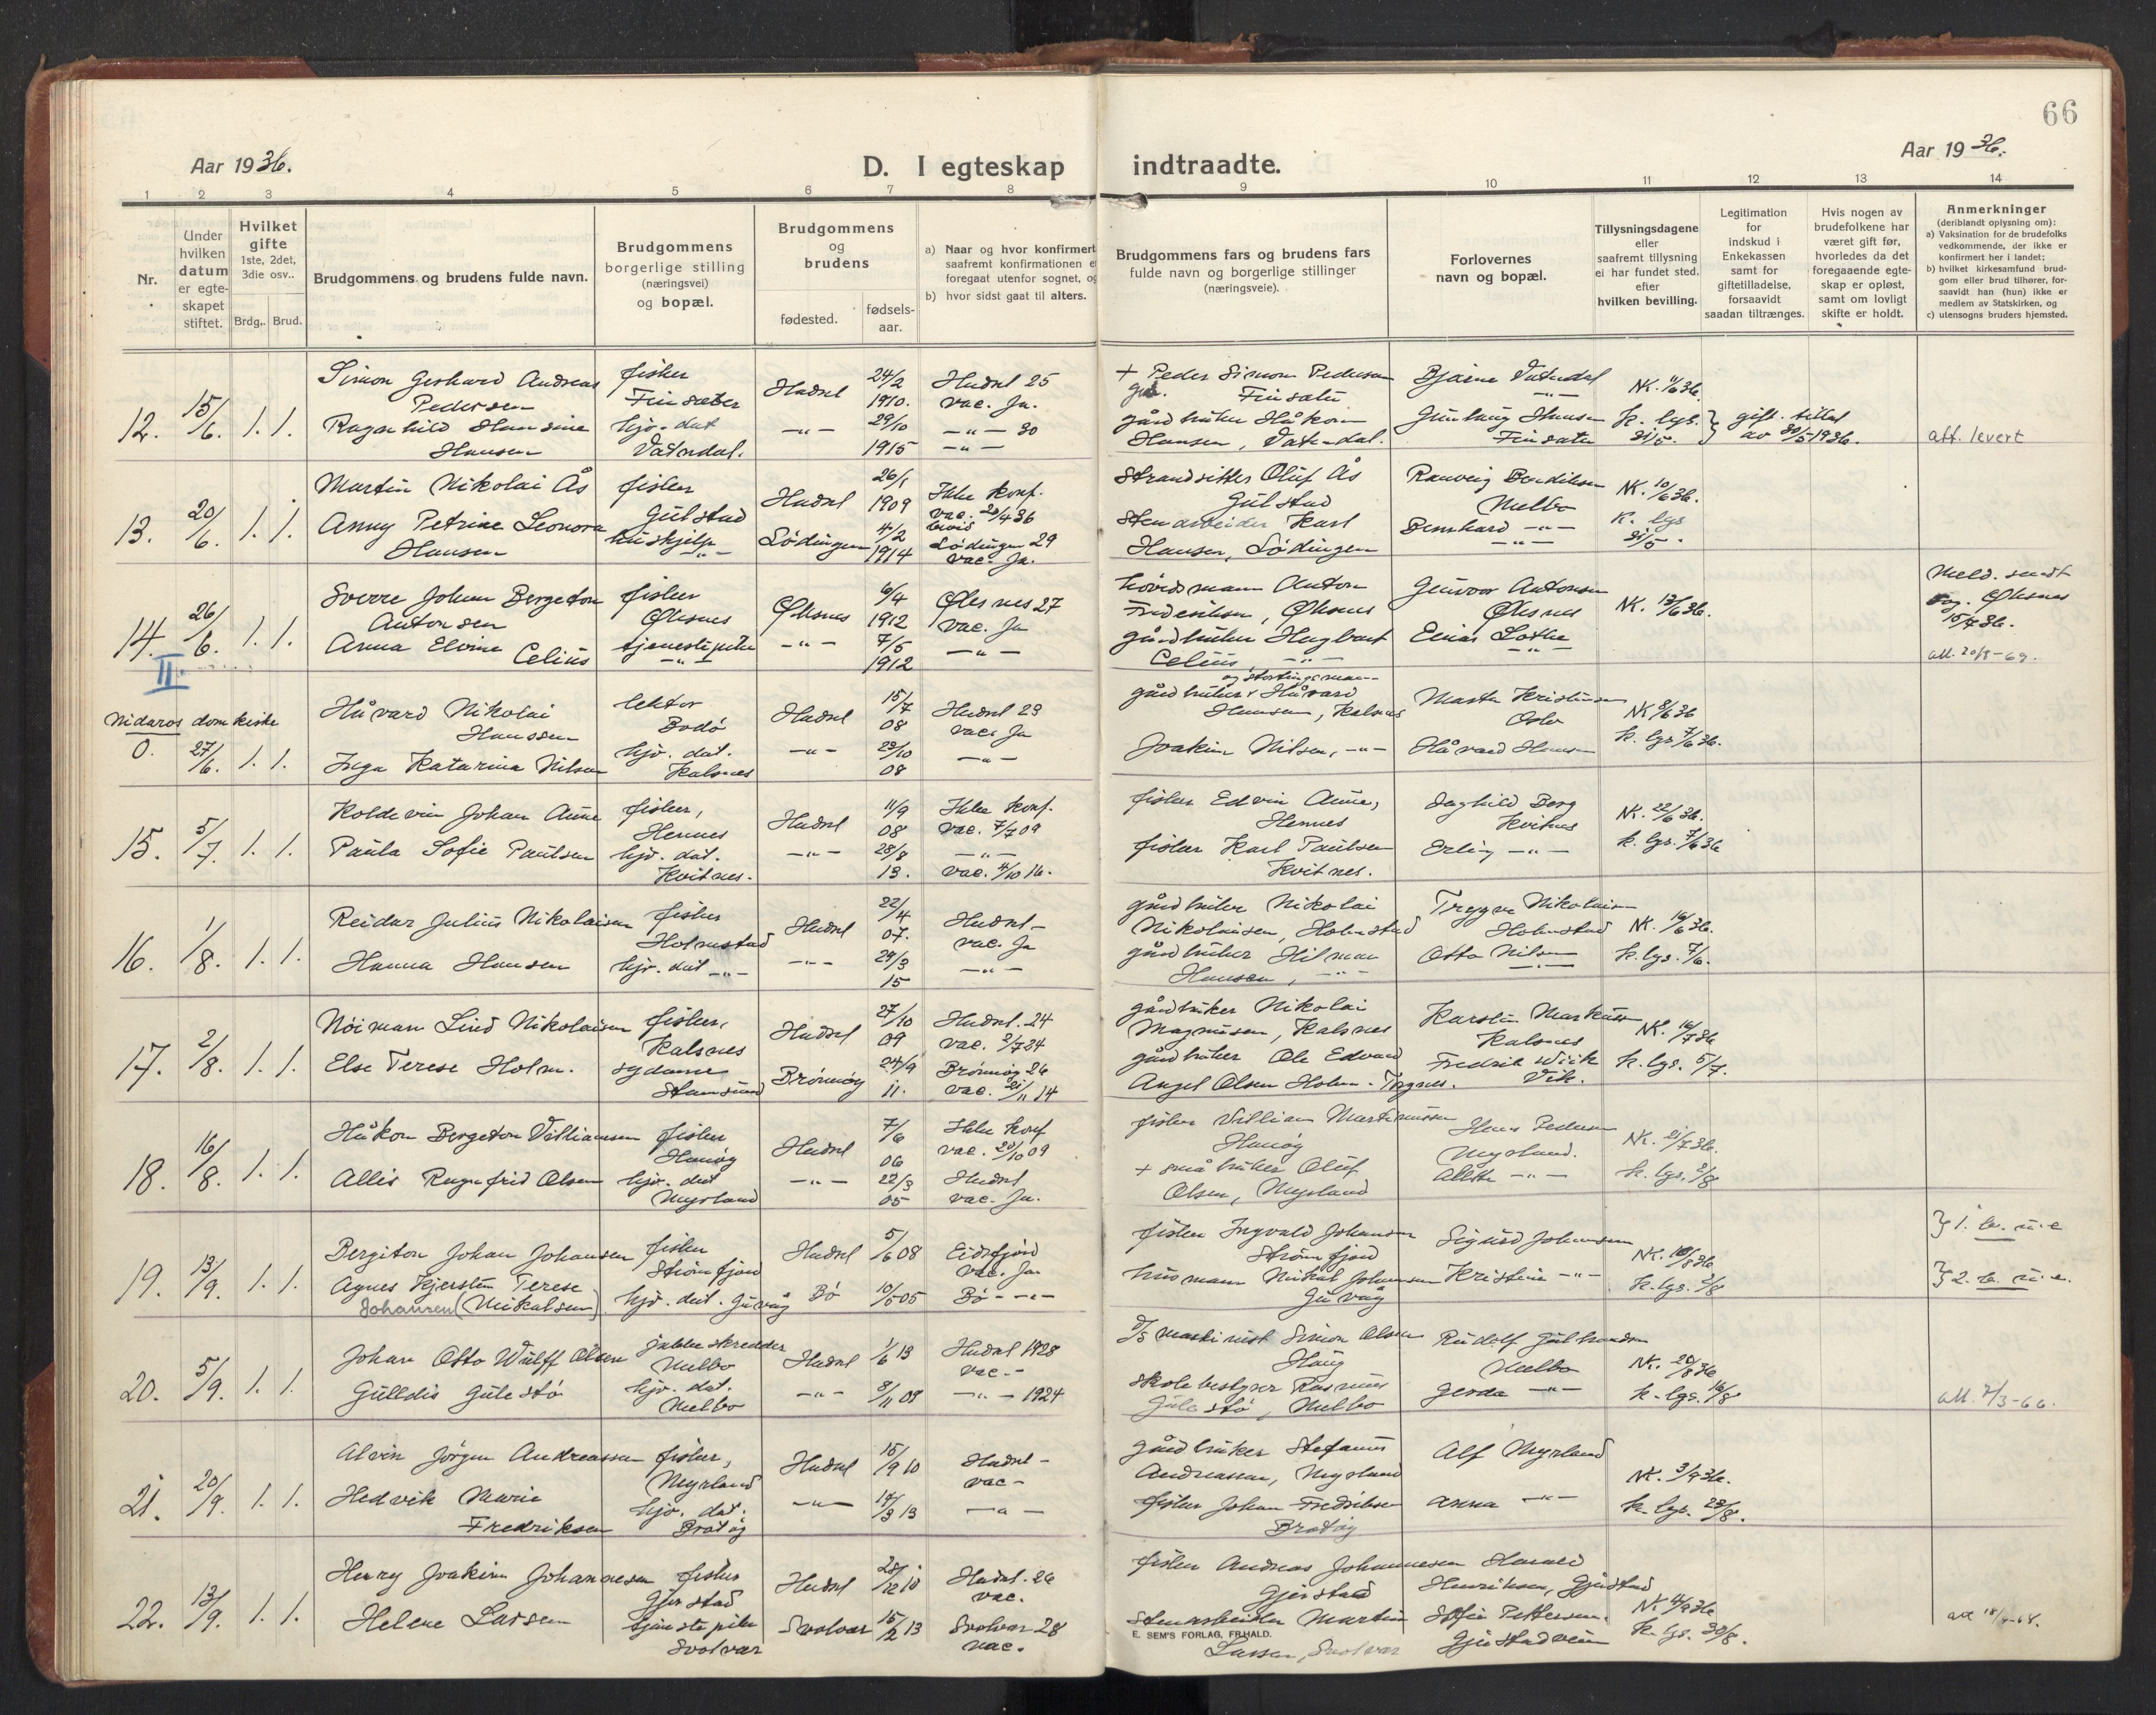 66
Aar 1936.
D. I egteskap indtraadte.
Aar 1936.
1 2 3 4 5 6 7 8 9 10 11 12 13 14
Nr.
Under hvilken datum er egteskapet stiftet.
Hvilket gifte 1ste, 2det, 3die osv..
Brdg.. Brud.
Brudgommens og brudens fulde navn.
Brudgommens borgerlige stilling (næringsvei) og bopæl.
Brudgommens og brudens
fødested.
fødsels-aar.
a) Naar og hvor konfirmert
saafremt konfirmationen
foregaat utenfor sognet, og
b) hvor sidst gaat til alters.
Brudgommens fars og brudens fars
fulde navn og borgerlige stillinger
(næringsveie).
Forlovernes
navn og bopæl.
Tillysningsdagene
eller
saafremt tillysning
ei har fundet sted.
efter
hvilken bevilling.
Legitimation
for
indskud i
Enkekassen
samt for
giftetilladelse,
forsaavidt
saadan tiltrænges.
Hvis nogen av
brudefolkene har
været gift før,
hvorledes da det
foregaaende egte-
skap er opløst,
samt om lovligt
skifte er holdt.
Anmerkninger
(deriblandt oplysning om):
a) Vaksination for de brudefolks
vedkommende, der ikke er
konfirmert her i landet;
b) hvilket kirkesamfund brud-
gom eller brud tilhører, for-
saavidt han (hun) ikke er
medlem av Statskirken, og
c) utensogns bruders hjemsted.
12. 15/6. 1. 1.
Simon Gerhard Andreas Pedersen
fisker Finsæter
Hadsel 24/2 1910.
Hadsel 25 vac. Ja.
+ Peder Simon Pedersen Finsæter
Bjarne Vatndal
NK. 11/6 36.
Ragnhild Hansine Hansen
hjv. dat Vatndal.
-"- 29/10 1915
-"- 30 -"-
gårdbruker Håkon Hansen, Vatndal.
Gunlaug Hansen Finsæter
k. lys. 31/5.
gift. tillat av 30/5 1936.
att. levert
13. 20/6. 1. 1.
Martin Nikolai Ås
fisker Gulstad
Hadsel 26/1 1909
Ikke konf. vac. 20/4 36
Strandsitter Oluf Ås Gulstad
Ranveig Bendiksen Melbo
NK. 10/6 36.
Anny Petrine Leonora Hansen
hushjelp -"-
Lødingen 4/2 1914
bevis Lødingen 29 vac. Ja.
Stenarbeider Karl Hansen, Lødingen
Bernhard -"- -"-
K. lys 31/5.
14. 26/6. 1. 1.
II.
Sverre Johan Bergeton Antonsen
fisker Øksnes
Øksnes 6/4 1912
Øksnes 27 vac. Ja
høvedsmann Anton Fredriksen, Øksnes
Gunvor Antonsen Øksnes
NK. 13/6 36.
Meld. sendt Øksnes 15/7 36.
Anna Elvine Celius
tjenestepike -"-
-"- 7/5 1912
-"-
gårdbruker Hagbart Celius, -"-
Einar Lothe -"-
att. 20/8-69.
Nidaros domkirke
0. 27/6. 1. 1.
Håvard Nikolai Hanssen
lektor Bodø
Hadsel 15/7 08
Hadsel 23 vac. Ja
gårdbruker og stortingsmann Håvard Hanssen, Kalsnes
Marta Kristinsen Oslo
NK 8/6 36
Inga Katarina Nilsen
hjv. dat. Kalsnes
-"- 23/10 08
-"-
Joakim Nilsen, -"-
Håvard Hansen
k. lys 7/6 36.
15. 5/7. 1. 1.
Koldevin Johan Aune
fisker, Hennes
Hadsel 11/9 08
Ikke konf. vac. 7/7 09
fisker Edvin Aune, Hennes
Berg Kvitnes
NK. 22/6 36.
Paula Sofie Paulsen
hjv. dat. Kvitnes.
-"- 28/8 13.
-"- vac. 4/10 16.
fisker Karl Paulsen Kvitnes.
Erling -"-
k. lys. 7/6 36
16. 1/8. 1. 1.
Reidar Julius Nikolaisen
fisker Holmstad
Hadsel 22/4 07.
Hadsel - vac. Ja
gårdbruker Nikolai Nikolaisen, Holmstad
Trygve Nikolaisen Holmstad
NK. 16/6 36.
Hanna Hansen
hjv. dat -"-
-"- 29/3 15
-"-
gårdbruker Hilmar Hansen, -"-
Otto Nilsen -"-
k. lys. 7/6.
17. 2/8. 1. 1.
Nöiman Lind Nikolaisen
fisker, Kalsnes
Hadsel 27/10 09
Hadsel. 24 vac. 2/7 24
gårdbruker Nikolai Magnusen, Kalsnes
Karstin Markussen Kalsnes
NK. 16/7 36
Else Terese Holm.
sydame Stamsund
Brønnøy 24/9 11.
Brønnøy 26 vac. 21/11 14
gårdbruker Ole Edvard Angel Olsen Holm - Torgnes.
Fredrik Wiik Vik.
k. lys. 5/7.
18. 16/8. 1. 1.
Håkon Bergeton Villiamsen
fisker Hanøy
Hadsel 7/6 06
Ikke konf vac. 20/10 09
fisker Villiam Martinussen Hanøy
Hans Pedersen Myrland.
NK. 21/7 36.
Allis Ragnfrid Olsen
hjv. dat Myrland
-"- 22/3 05
Hadsel vac. Ja.
+ småbruker Oluf Olsen, Myrland
-"-
k. lys. 2/8
19. 13/9. 1. 1.
Bergiton Johan Johansen
fisker Strømfjord
Hadsel 5/6 08
Eidsfjord vac. Ja
fisker Ingvald Johansen Strømfjord
Sigurd Johansen
NK. 18/8 36
} 1. b. u. e
Agnes Kjerstin Terese Johansen (Mikalsen)
hjv. dat. Guvåg
Bø 10/5 05
Bø - "-
husmann Mikal Johansen Guvåg
Kristine -"-
k. lys. 2/8
} 2. b. u. e.
20. 5/9. 1. 1.
Johan Otto Wulff Olsen
Melbo
Hadsel 1/6 13
Hadsel 1928 vac. -
D/S maskinist Simon Olsen Haug
Rudolf Gulbrandsen Melbo
NK. 20/8 36
Gulldis Gulestø
hjv. dat. Melbo
-"- 8/11 09
-"- 1924
skolebestyrer Rasmus Gulestø, Melbo
Gerda -"-
k. lys. 16/8
att. 7/3-66.
21. 20/9. 1. 1.
Alvin Jørgen Andreassen
fisker, Myrland
Hadsel 15/9 10
Hadsel - vac -
gårdbruker Stefanus Andreassen, Myrland
Alf Myrland
NK. 3/9 36.
Hedvik Marie Fredriksen
hjv. dat. Brotøy
-"- 14/3 13
-"-
fisker Johan Fredriksen Brotøy
Anna -"-
k. lys. 23/8.
22. 13/9. 1. 1.
Henry Joakim Johannesen
fisker Gjerstad
Hadsel 28/12 10
Hadsel. 26 vac.
fisker Andreas Johannesen Gjerstad
Harald Henriksen, Gjerstad
NK. 4/9 36
Helene Larsen
tjenestepike Svolvær
Svolvær 15/2 13
Svolvær 28 vac.
Stenarbeider Martin Larsen, Svolvær
Sofie Pettersen.
k. lys. 30/8.
E. SEM'S FORLAG, FR.HALD.